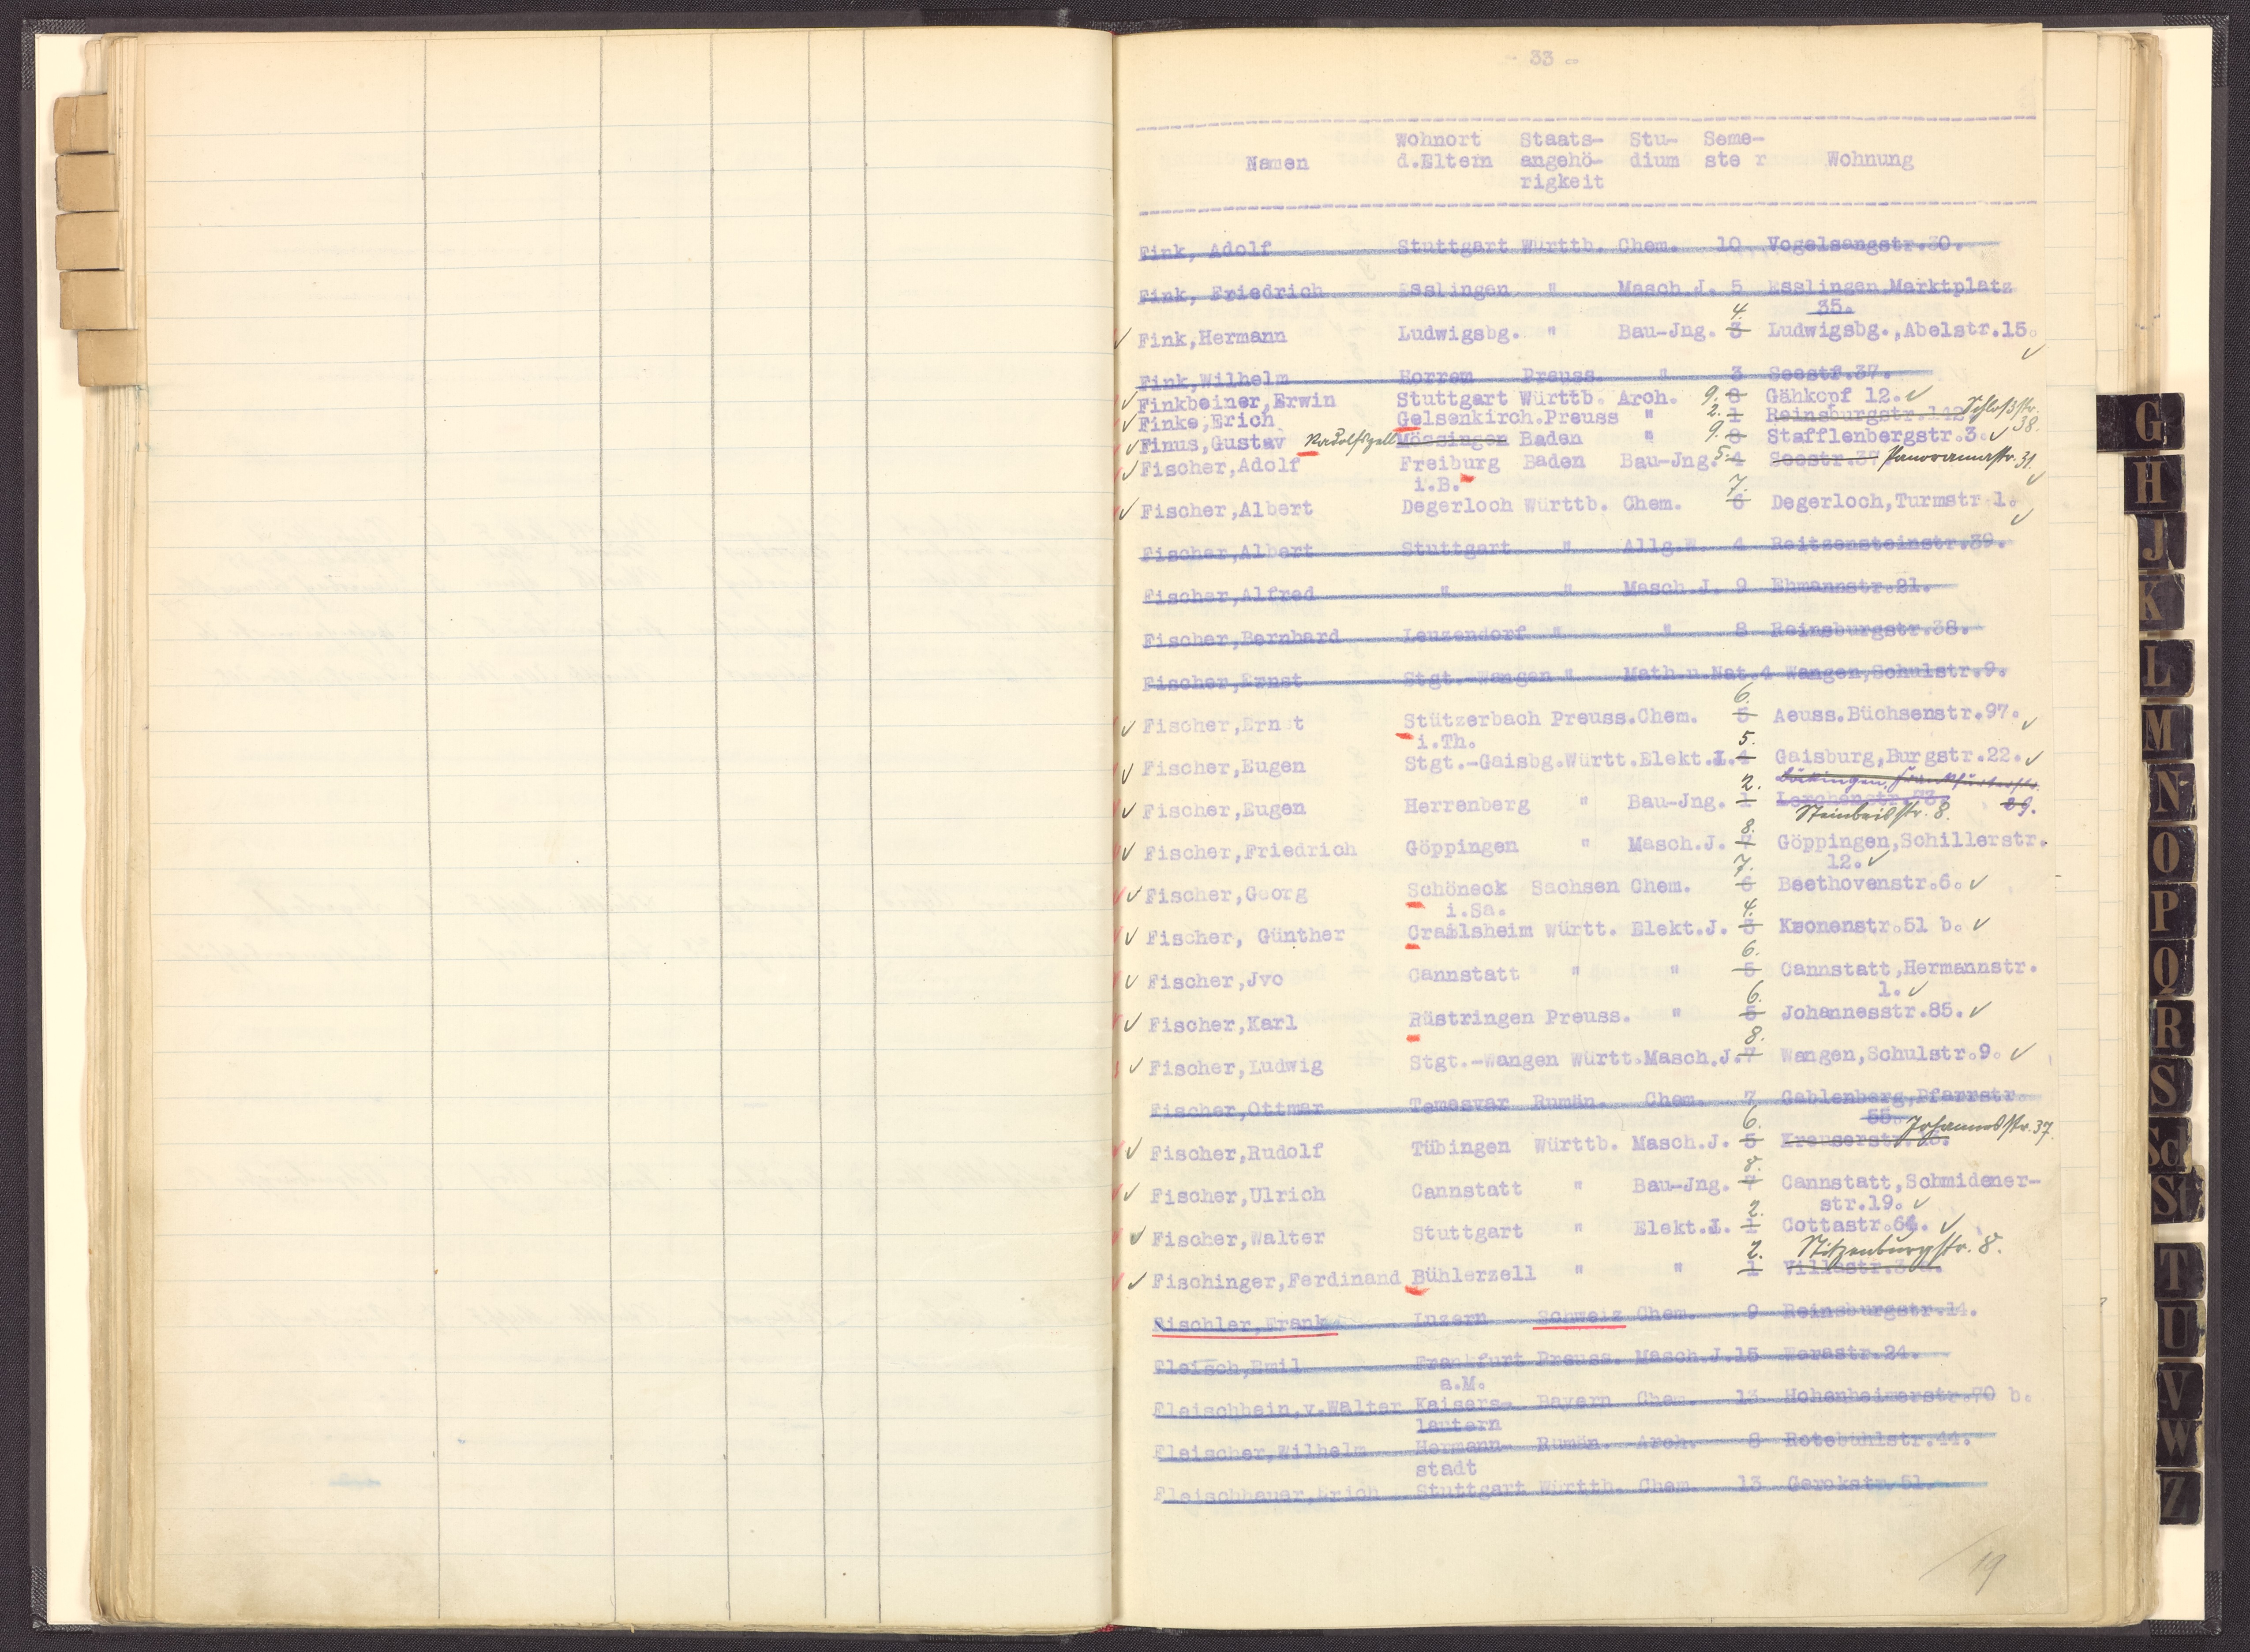 - 33 -
Wohnort Staats- Stu- Seme-
Namen d.Eltern angehö- dium ste r Wohnung
rigkeit
Fink, Adolf Stuttgart Württb. Chem. 10 Vogelsangstr.30.
Fink, Friedrich Esslingen " Masch.J. 5 Esslingen,Marktplatz
35.
4.
✓ Fink,Hermann Ludwigsbg. " Bau-Jng. 3 Ludwigsbg.,Abelstr.15. ✓
Fink,Wilhelm Horrem Preuss. " 3 Seestr.37.
✓ Finkbeiner,Erwin Stuttgart Württb. Arch. 9. 8 Gähkopf 12. ✓
✓ Finke,Erich Gelsenkirch.Preuss " 2. 1 Reinsburgstr.142 Schloßstr. 38.
✓ Finus,Gustav Radolfszell Mössingen Baden " 9. 8 Stafflenbergstr.3. ✓
✓ Fischer,Adolf Freiburg Baden Bau-Jng. 5. 4 Seestr.37 Panoramastr. 31. ✓
i.B.
7.
✓ Fischer,Albert Degerloch Württb. Chem. 6 Degerloch,Turmstr 1. ✓
Fischer,Albert Stuttgart " Allg.W. 4 Reitzensteinstr.39.
Fischer,Alfred " " Masch.J. 9 Ehmannstr.21.
Fischer,Bernhard Leuzendorf " " 8 Reinsburgstr.38.
Fischer,Ernst Stgt.-Wangen " Math.u.Nat.4 Wangen,Schulstr.9.
6.
✓ Fischer,Ernst Stützerbach Preuss.Chem. 5 Aeuss.Büchsenstr.97. ✓
i.Th.
5.
✓ Fischer,Eugen Stgt.-Gaisbg.Württ.Elekt.J.4 Gaisburg,Burgstr.22. ✓
2.
✓ Fischer,Eugen Herrenberg " Bau-Jng. 1 Lerchenstr.73. 29.
Steinbeisstr. 8.
8.
✓ Fischer,Friedrich Göppingen " Masch.J. 7 Göppingen,Schillerstr.
12. ✓
7.
✓ Fischer,Georg Schöneck Sachsen Chem. 6 Beethovenstr.6. ✓
i.Sa.
4.
✓ Fischer, Günther Crailsheim Württ. Elekt.J. 3 Kronenstr.51 b. ✓
6.
✓ Fischer,Jvo Cannstatt " " 5 Cannstatt,Hermannstr.
1. ✓
6.
✓ Fischer,Karl Rüstringen Preuss. " 5 Johannesstr.85. ✓
8.
✓ Fischer,Ludwig Stgt.-Wangen Württ.Masch.J.7 Wangen,Schulstr.9. ✓
Fischer,Ottmar Temesvar Rumän. Chem. 7 Gablenberg,Pfarrstr.
55.
6.
✓ Fischer,Rudolf Tübingen Württb. Masch.J. 5 Kreuserstr. Johannesstr. 37.
8.
✓ Fischer,Ulrich Cannstatt " Bau-Jng. 7 Cannstatt,Schmidener-
str.19. ✓
2.
✓ Fischer,Walter Stuttgart " Elekt.J. 1 Cottastr.64. ✓
2. Stitzenburgstr. 8.
✓ Fischinger,Ferdinand Bühlerzell " " 1 Villastr.
Fischler,Frank Luzern Schweiz Chem. 9 Reinsburgstr.14.
Fleisch,Emil Frankfurt Preuss. Masch.J.15 Werastr.24.
a.M.
Fleischbein,v.Walter Kaisers- Bayern Chem. 13 Hohenheimerstr.70 b.
lautern
Fleischer,Wilhelm Hermann- Rumän. Arch. 8 Rotebühlstr.44.
stadt
Fleischhauer,Erich Stuttgart Württb. Chem. 13 Gerokstr.51.
19
G
H
J
K
L
M
N
O
P
Q
R
S
Sch
St
T
U
V
W
Z